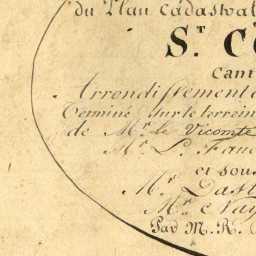 du Plan Cadastral
S.T C
Cant
Arrondissement
Terminé sur le terrein
de Mr. le Vicomte
Mr. L. Fauc
et sous
Mr. Dast
Mr.
Par M. R.